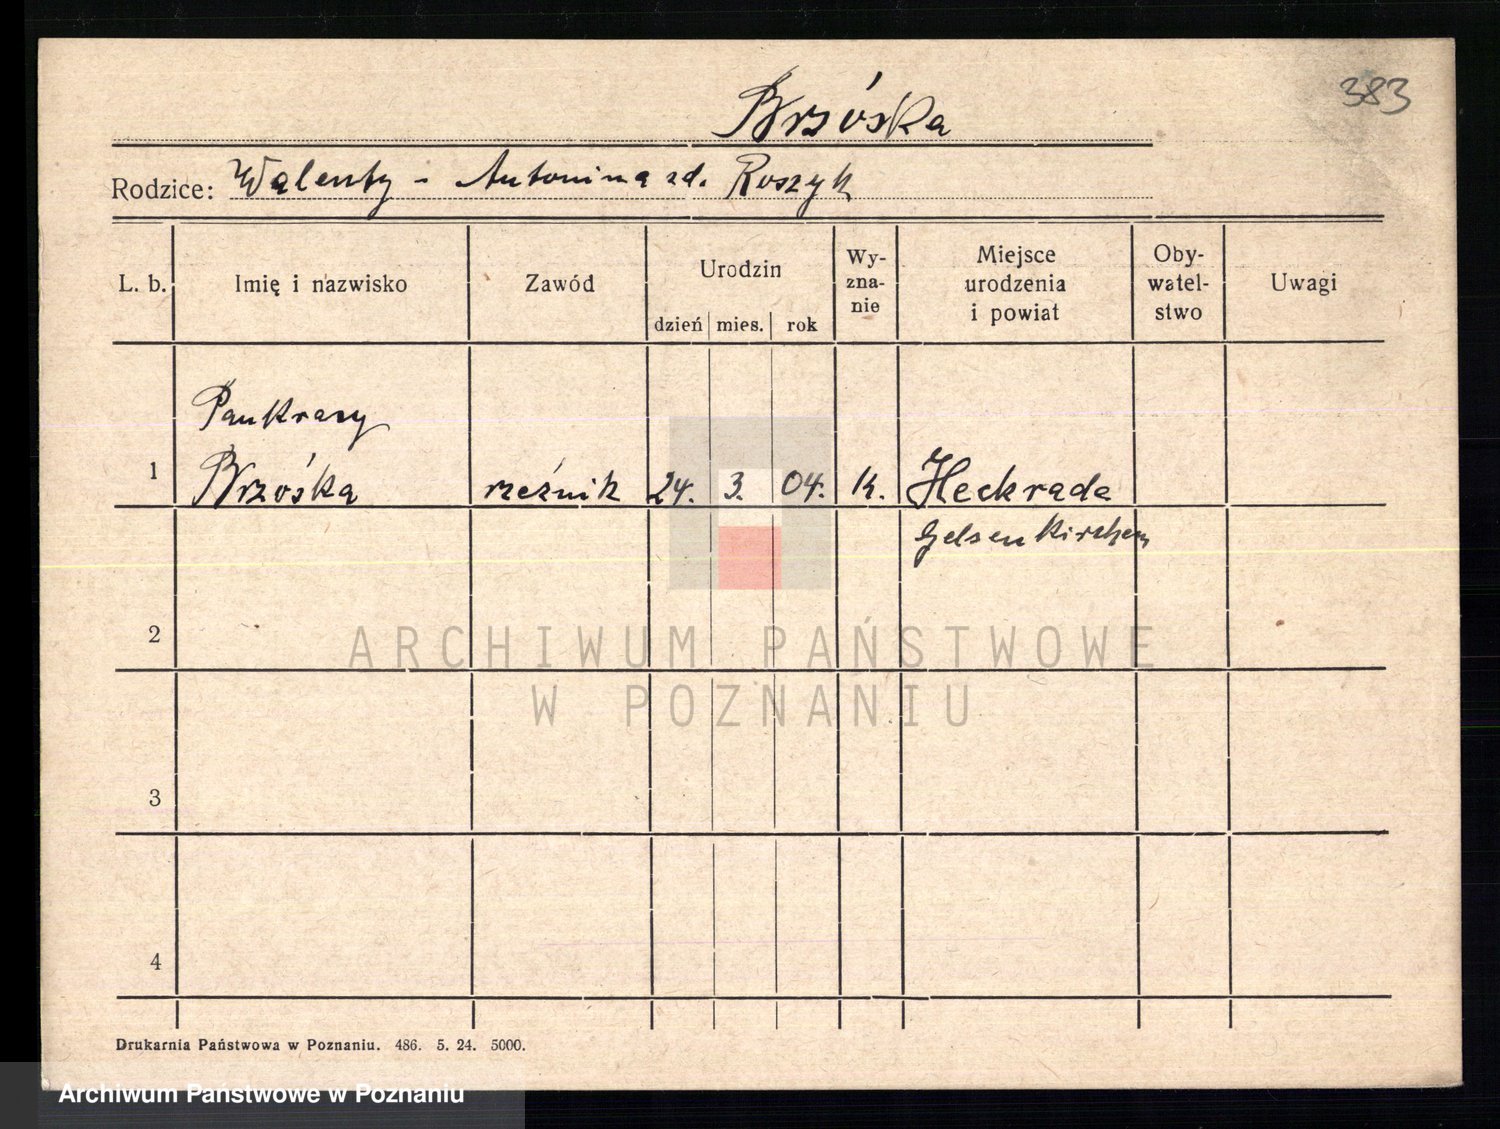 383
Brzóska
Rodzice: Walenty - Antonina zd. Roszyk
L. b. Imię i nazwisko Zawód Urodzin dzień mies. rok Wy-zna-nie Miejsce urodzenia i powiat Oby-watel-stwo Uwagi
Pankracy
1 Brzóska rzeźnik 24. 3. 04. k. Heckrada
Gelsenkirchen
2
ARCHIWUM PAŃSTWOWE
W POZNANIU
3
4
Drukarnia Państwowa w Poznaniu. 486. 5. 24. 5000.
Archiwum Państwowe w Poznaniu